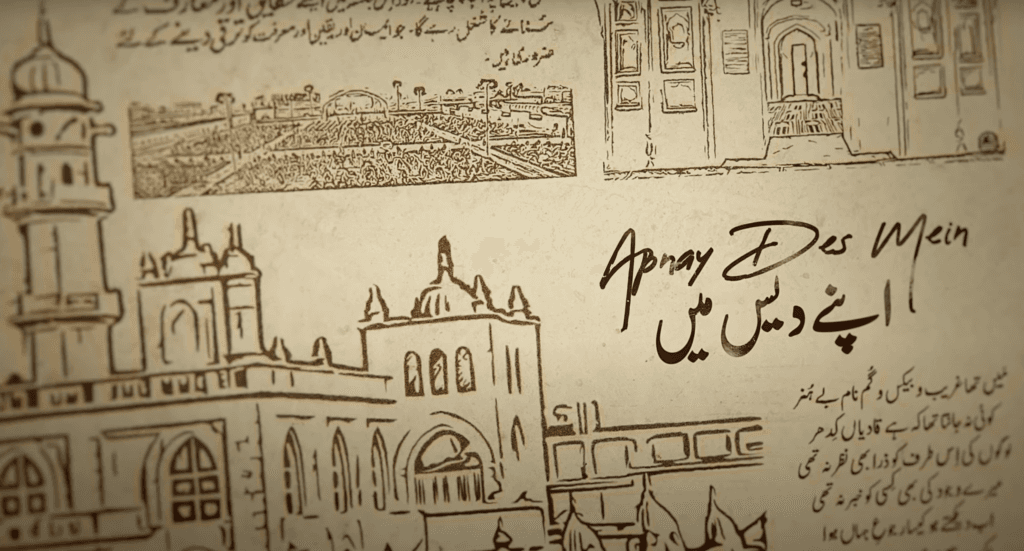 ایسے حقایق اور معارف کے
سنانے کا شغل رہے گا۔ جو ایمان اور یقین اور معرفت کو ترقی دینے کے لئے
ضروری ہیں۔
Apnay Des Mein
اپنے دیس میں
میں تھا غریب و بیکس و گُم نام بے ہُنر
کوئی نہ جانتا تھا کہ ہے قادیاں کدھر
لوگوں کی اِس طرف کو ذرا بھی نظر نہ تھی
میرے وجود کی بھی کسی کو خبر نہ تھی
اب دیکھتے ہو کیسا رجوعِ جہاں ہوا